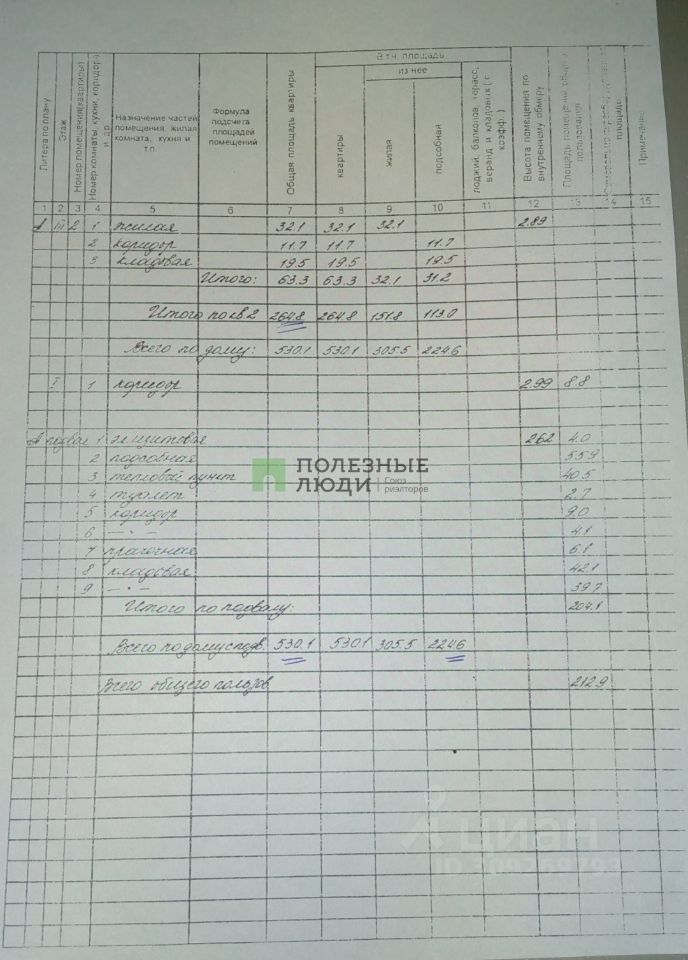 Литера по плану
Этаж
Номер помещения(квартиры)
Номер комнаты, кухни, коридора и др.
Назначение частей помещения: жилая комната, кухня и т.п.
Формула подсчета площадей помещений
Общая площадь квартиры
В т.ч. площадь
квартиры
из нее
жилая
подсобная
лоджий, балконов, террас, веранд и кладовых (с коэфф.)
Высота помещения по внутреннему обмеру
Площадь помещений общего пользования
площадь
Примечание
1 2 3 4 5 6 7 8 9 10 11 12 13 14 15
А III 2 1 жилая 32.1 32.1 32.1 2.89
2 коридор 11.7 11.7 11.7
3 кладовая 19.5 19.5 19.5
Итого: 63.3 63.3 32.1 31.2
Итого по кв.2 264.8 264.8 151.8 113.0
Всего по дому: 530.1 530.1 305.5 224.6
I 1 коридор 2.99 8.8
А подвал 1 эл щитовая 262 4.0
2 подсобная 55.9
3 тепловой пункт 40.5
4 туалет 2.7
5 коридор 9.0
6 — " — 4.1
7 прачечная 6.1
8 кладовая 42.1
9 — " — 39.7
Итого по подвалу: 204.1
Всего по дому с подв. 530.1 530.1 305.5 224.6
Всего общего пользов 212.9
ПОЛЕЗНЫЕ
ЛЮДИ
Союз
риэлторов
циан